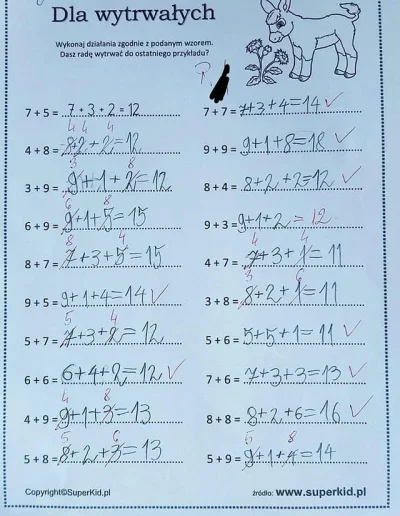 Dla wytrwałych
Wykonaj działania zgodnie z podanym wzorem.
Dasz radę wytrwać do ostatniego przykładu?
P.
7 + 5 = 7 + 3 + 2 = 12
4 4 4
4 + 8 = 8+2+2=12
3 8
3 + 9 = 9+1+2=12
6 8
6 + 9 = 9+1+5=15
8 4
8 + 7 = 7+3+5=15
9 + 5 = 9+1+4=14 ✓
5 4
5 + 7 = 7+3+2=12
6 + 6 = 6+4+2=12 ✓
4 8
4 + 9 = 9+1+3=13
5 6
5 + 8 = 8+2+3=13
7 + 7 = 7+3+4=14 ✓
9 + 9 = 9+1+8=18 ✓
8 + 4 = 8+2+2=12 ✓
9 + 3 = 9+1+2=12
4 4
4 + 7 = 7+3+1=11
3 6
3 + 8 = 8+2+1=11
5 + 6 = 5+5+1=11 ✓
7 + 6 = 7+3+3=13 ✓
8 + 8 = 8+2+6=16 ✓
5 8
5 + 9 = 9+1+4=14
Copyright©SuperKid.pl
źródło: www.superkid.pl